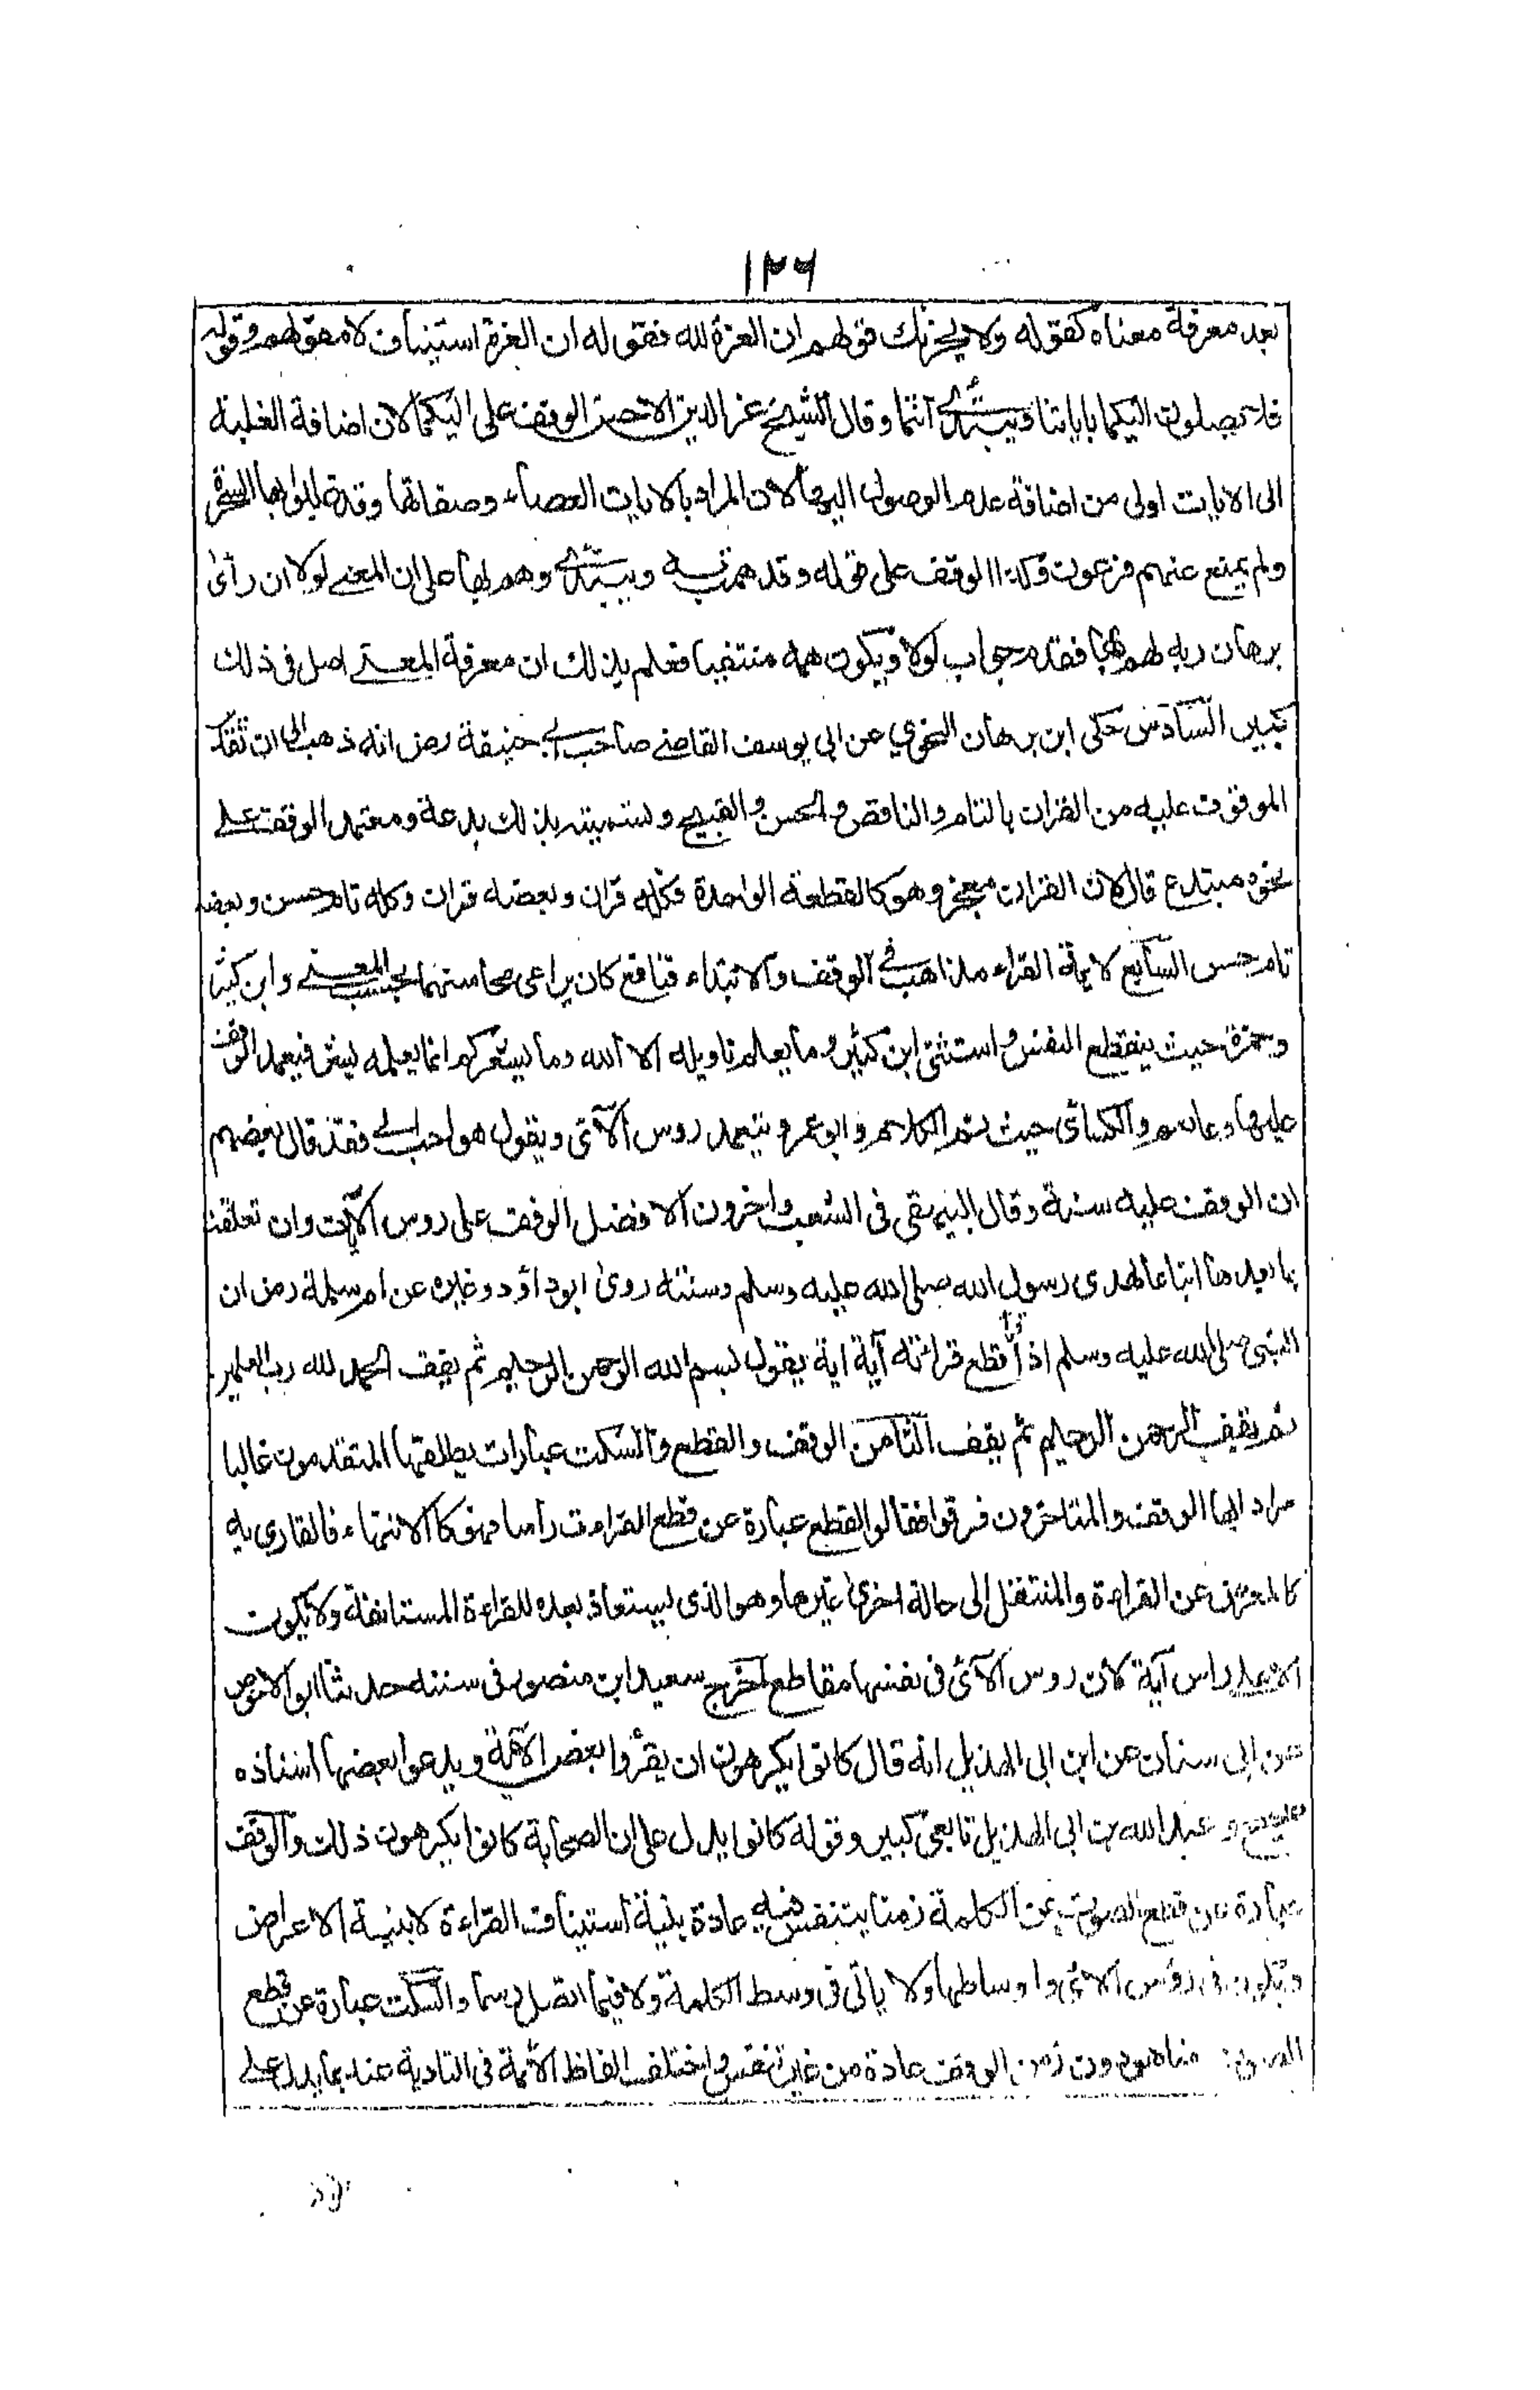 ١٢٦
بعد معرفة معناه كقوله ولا يحزنك قولهم ان العزة لله فقوله ان العزة استيناف لا مقولهم وقوله
فلا يصلون اليكما باياتنا ويبتدئ انتما وقال الشيخ عز الدين الاحسن الوقف على اليكما لان اضافة الغلبة
الى الايات اولى من اضافة عدم الوصول اليها لان المراد بالايات العصاء وصفاتها وقد غلبوا بها السحرة
ولم يمنع عنهم فرعون وكذا الوقف على قوله وقد همت به ويبتدئ وهم بها على ان المعنى لولا ان رأى
برهان ربه لهم بها فقدم جواب لولا ويكون همه منتفيا فعلم بذلك ان معرفة المعنى اصل فى ذلك
كبير السادس حكى ابن برهان النحوي عن ابي يوسف القاضي صاحب ابي حنيفة رض انه ذهب الى ان تقدير
الموقوف عليه من القران بالتام والناقص والحسن والقبيح وتسميته بذلك بدعة ومعتمد الوقف على
نحوه مبتدع قال لان القران معجز وهو كالقطعة الواحدة فكله قران وبعضه قران وكله تام حسن وبعضه
تام حسن السابع لائمة القراء مذاهب في الوقف والابتداء فنافع كان يراعى محاسنهما بحسب المعنى وابن كثير
وحمزة حيث ينقطع النفس واستثنى ابن كثير وما يعلم تاويله الا الله وما يشعركم انما يعلمه بشر فيعمد الوقف
عليها وعاصم والكسائى حيث تم الكلام وابو عمرو يتعمد روس الآى ويقول هو احب الي فقد قال بعضهم
ان الوقف عليه سنة وقال البيهقى فى الشعب واخرون الافضل الوقف على روس الآيات وان تعلقت
بما بعدها اتباعا لهدى رسول الله صلى الله عليه وسلم وسنته روى ابو داؤد وغيره عن ام سلمة رض ان
النبى صلى الله عليه وسلم اذا قرأ قطع قرائته آية اية يقول بسم الله الرحمن الرحيم ثم يقف الحمد لله رب العلمين
ثم يقف الرحمن الرحيم ثم يقف الثامن الوقف والقطع والسكت عبارات يطلقها المتقدمون غالبا
مرادا بها الوقف والمتاخرون فرقوا فقالوا القطع عبارة عن قطع القراءت رأسا فهو كالانتهاء فالقارى به
كالمعرض عن القراءة والمنتقل الى حالة اخرى غيرها وهو الذى يستعاذ بعده للقراءة المستانفة ولا يكون
الا على راس آية لان روس الآى فى نفسها مقاطع اخرج سعيد ابن منصور فى سننه حدثنا ابو الاحوص
عن ابى سنان عن ابن ابى الهذيل انه قال كانوا يكرهون ان يقرؤا بعض الآية ويدعوا بعضها اسناده
صحيح و عبد الله بن ابى الهذيل تابعى كبير وقوله كانوا يدل على ان الصحابة كانوا يكرهون ذلك والوقف
عبارة عن قطع الصوت عن الكلمة زمنا يتنفس فيه عادة بنية استيناف القراءة لا بنية الاعراض
ويكون فى رؤس الآى واوساطها ولا ياتى فى وسط الكلمة ولا فيما اتصل رسما والسكت عبارة عن قطع
الصوت زمنا هو دون زمن الوقف عادة من غير تنفس واختلف الفاظ الائمة فى التادية عنه بما يدل على